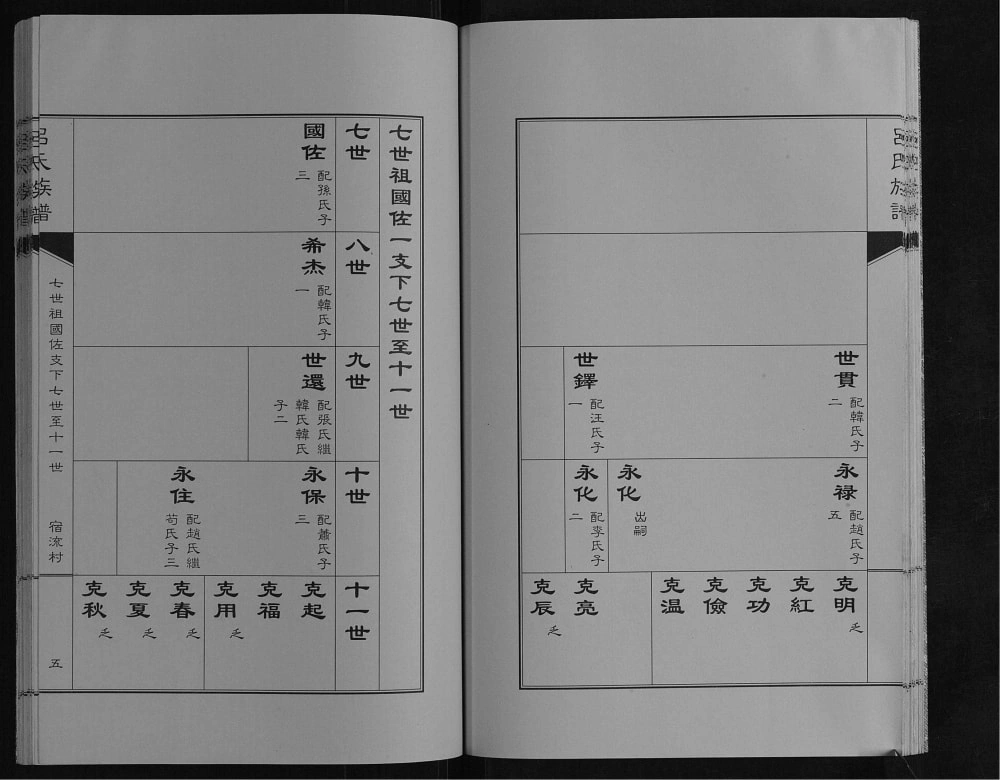 呂氏族譜
世貫
配韓氏子
二
世鐸
配汪氏子
一
永禄
配趙氏子
五
永化
出嗣
永化
配李氏子
二
克明
乏
克紅
克功
克儉
克温
克亮
克辰
乏
七世祖國佐一支下七世至十一世
七世
國佐
配孫氏子
三
八世
希杰
配韓氏子
一
九世
世還
配張氏繼
韓氏韓氏
子二
十世
永保
配蕭氏子
三
永住
配趙氏繼
苟氏子三
十一世
克起
克福
克用
乏
克春
乏
克夏
乏
克秋
乏
呂氏族譜
七世祖國佐支下七世至十一世
宿流村
五